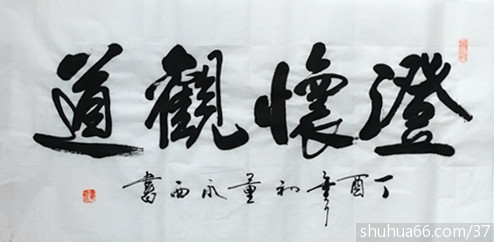 澄懷觀道
丁酉年初夏永西書
shuhua66.com/37